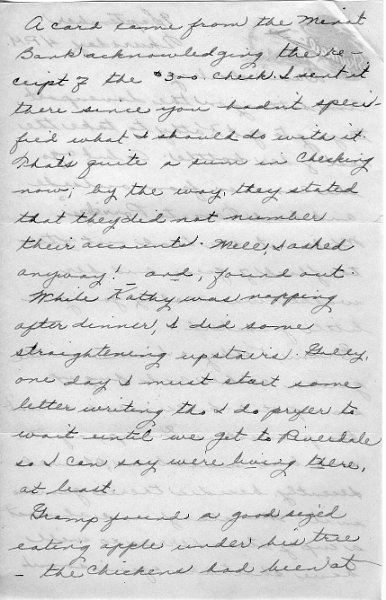 A card came from the Minot
Bank acknowledging the re-
ceipt of the $300. check. I sent it
there since you hadn't speci-
fied what I should do with it
That's quite a sum in checking
now; by the way, they stated
that they did not number
their accounts. Well, I asked
anyway! and, found out.
While Kathy was napping
after dinner, I did some
straightening upstairs. Golly,
one day I must start some
letter writing tho I do prefer to
wait until we get to Riverdale
so I can say were living there,
at least.
Gramp found a good sized
eating apple under his tree
- the chickens had been at